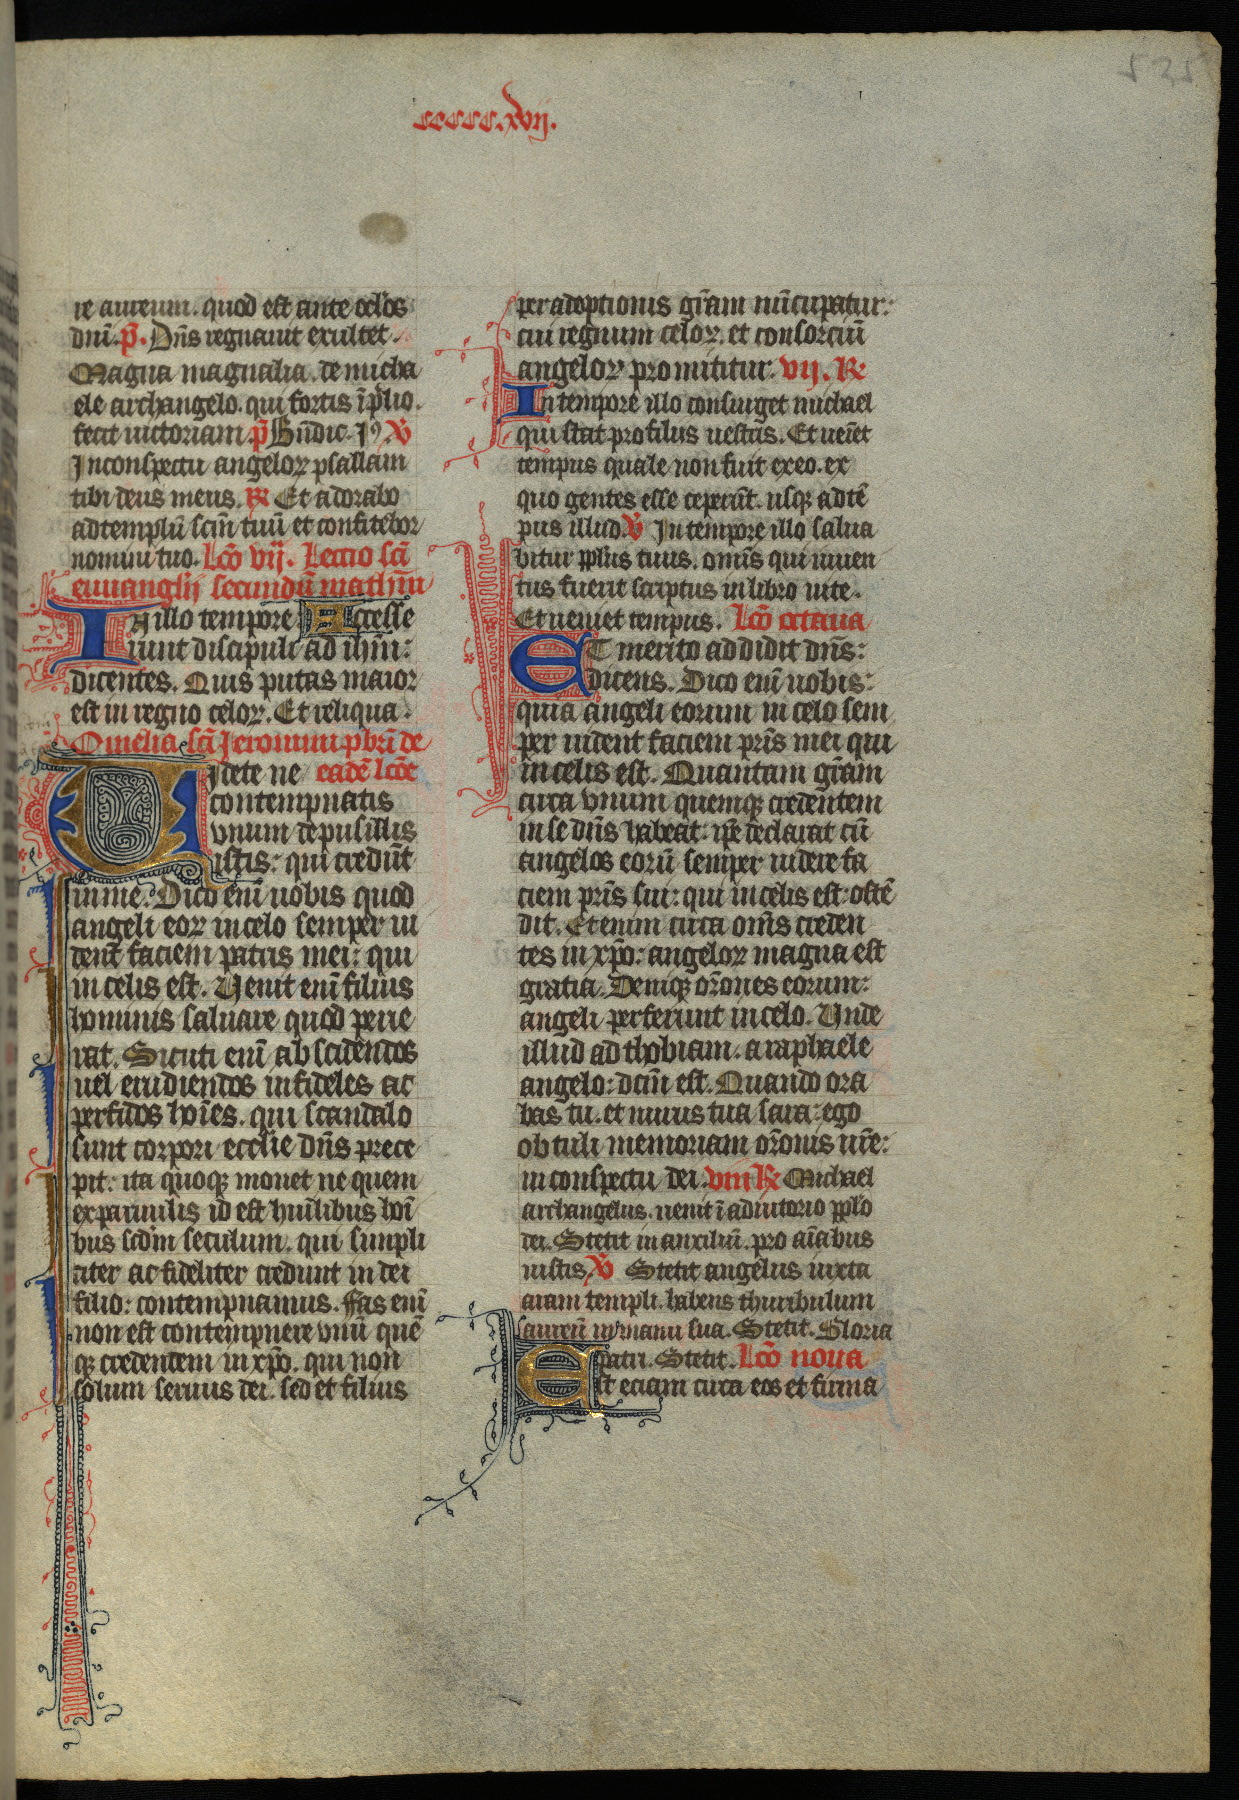 525
ccccc.xvij.
re aureum. quod est ante oc̄los
dn̄i. p̄. Dn̄s regnauit exultet.
Magna magnalia. de micha
ele archangelo. qui fortis ī p̄lio.
fecit uictoriam. p̄ Bn̄dic. jꝰ. V̄
Inconspectu angeloꝝ psallam
tibi deus meus. R Et adorabo
adtemplū scm̄ tuū et confitebor
nomini tuo. Lc̄o vij. Lectio scī
euuanglij secundū mathm̄
IN illo tempore Accesse
runt discipuli ad ihm̄:
dicentes. Quis putas maior
est in regno celoꝝ. Et reliqua.
Omelia scī Jeronimi p̄bri de
Uidete ne eadē lc̄oe
contempnatis
vnum de pusillis
istis: qui credūt
in me. Dico enī uobis quod
angeli eoꝝ in celo semper ui
dent̄ faciem patris mei: qui
in celis est. Venit enī filius
hominis saluare quod perie
rat. Sicuti enī abscidendos
uel erudiendos infideles ac
perfidos hoīes. qui scandalo
sunt corpori ecclie dn̄s prece
pit: ita quoqꝫ monet ne quem
ex paruulis id est hūilibus hoī
bus scdm̄ seculum. qui simpli
citer ac fideliter credunt in dei
filio: contempnamus. Fas enī
non est contempnere vnū quē
qꝫ credentem in xp̄o. qui non
solum seruus dei. sed et filius
per adoptionis grām nūcupatur:
cui regnum celoꝝ. et consorciū
angeloꝝ promittitur. vij. R
In tempore illo consurget michael
qui stat pro filiis uestris. Et ueiēt
tempus quale non fuit ex eo. ex
quo gentes esse ceperūt. usqꝫ ad tē
pus illud. V̄ In tempore illo salua
bitur pplus tuus. omīs qui inuen
tus fuerit scriptus in libro uite.
Et ueniet tempus. Lc̄o octaua
ET merito addidit dn̄s:
dicens. Dico enī uobis:
quia angeli eorum in celo sem
per uident faciem pr̄is mei qui
in celis est. Quantam grām
circa vnum quemqꝫ credentem
in se dn̄s habeat: ip̄e declarat cū
angelos eorū semper uidere fa
ciem pr̄is sui: qui in celis est: ostē
dit. Etenim circa omīs creden
tes in xp̄o: angeloꝝ magna est
gratia. Deniqꝫ or̄ones eorum:
angeli perferunt in celo. Unde
illud ad thobiam. a raphaele
angelo: dcm̄ est. Quando ora
bas tu. et nurus tua sara: ego
obtuli memoriam or̄onis ur̄e:
in conspectu dei. viii R Michael
archangelus. uenit ī adiutorio pplo
dei. Stetit in auxiliū. pro aīabus
iustis. V̄ Stetit angelus iuxta
aram templi. habens thuribulum
aureū in manu sua. Stetit. Gloria
patri. Stetit. Lc̄o noua
Est eciam circa eos et firma